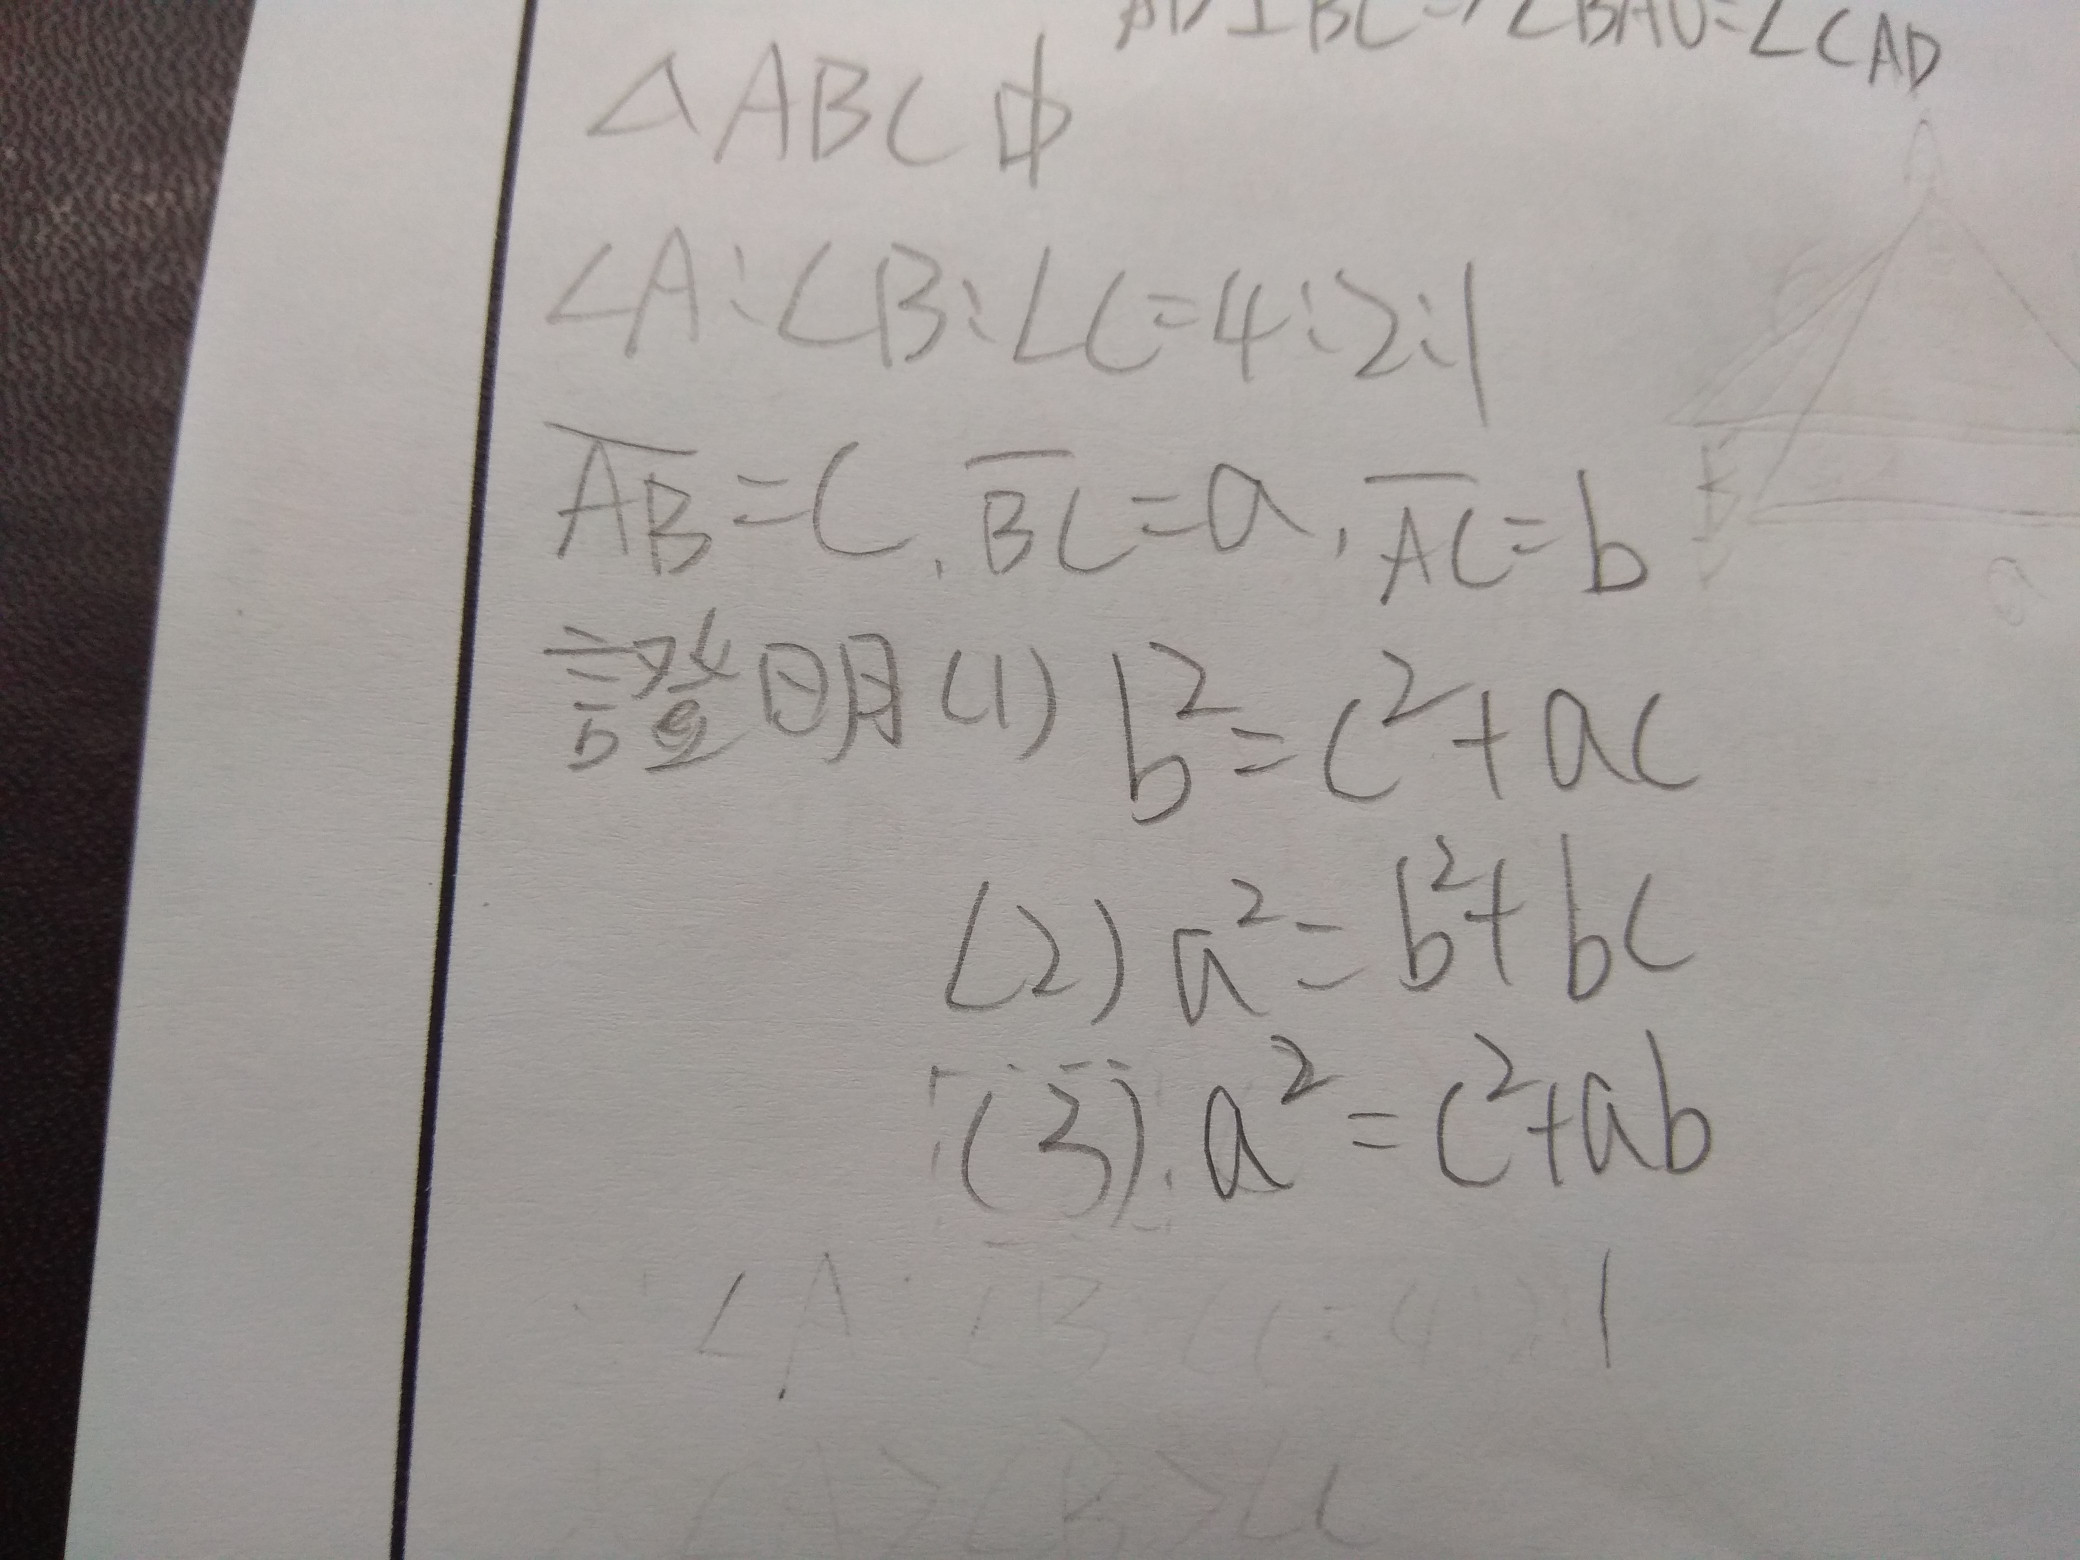 ∠CAD
△ABC中
∠A:∠B:∠C=4:2:1
AB=c, BC=a, AC=b
證明(1) b²=c²+ac
(2) a²=b²+bc
(3) a²=c²+ab
∠A:∠B:∠C=4:2:1
∠A>∠B>∠C